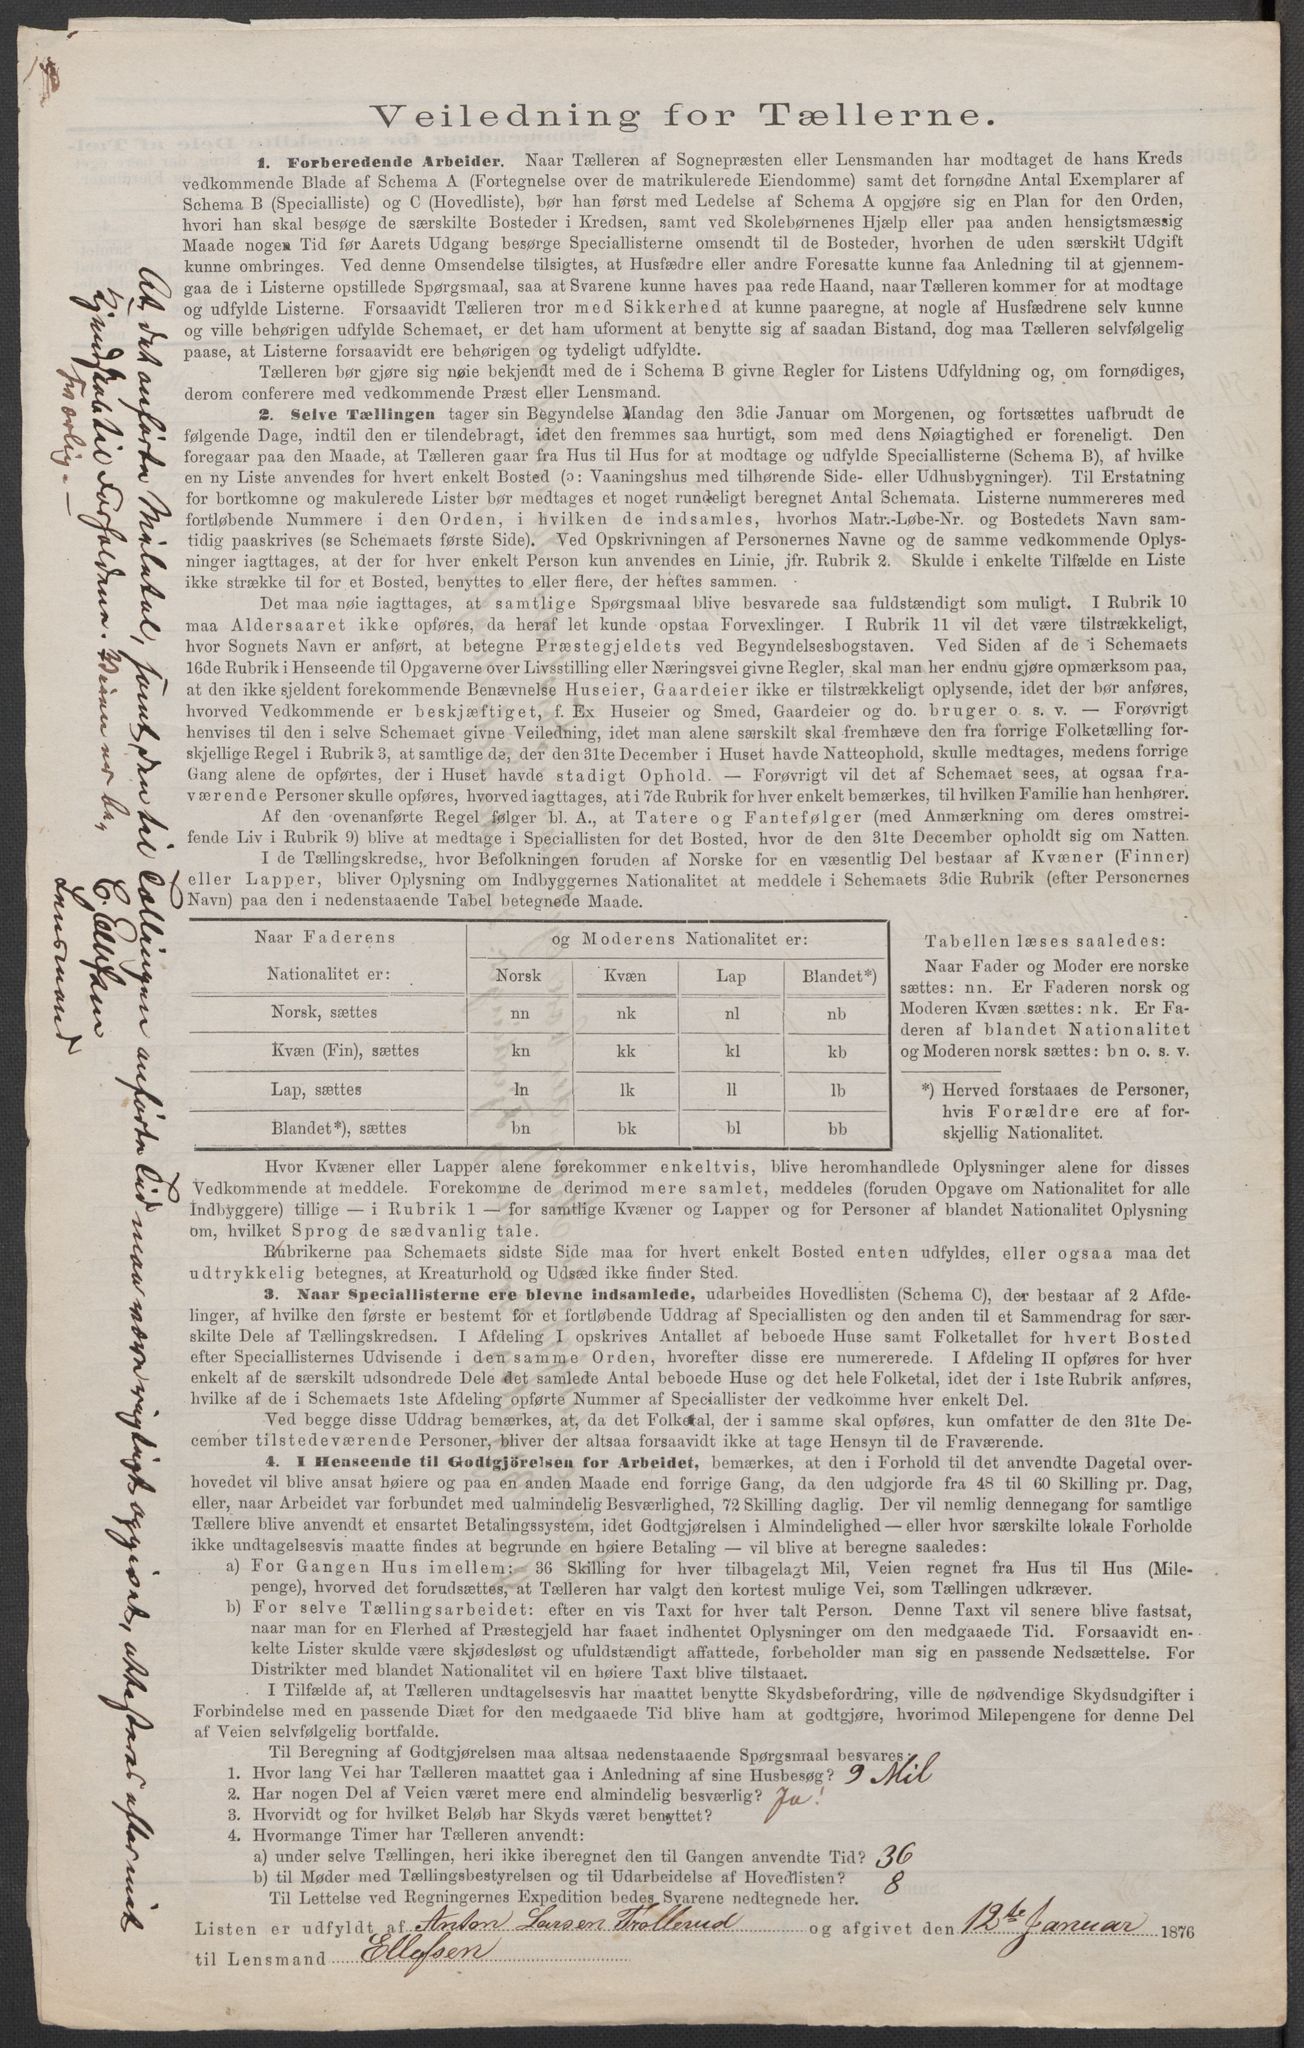 Veiledning for Tællerne.
1. Forberedende Arbeider. Naar Tælleren af Sognepræsten eller Lensmanden har modtaget de hans Kreds
vedkommende Blade af Schema A (Fortegnelse over de matrikulerede Eiendomme) samt det fornødne Antal Exemplarer af
Schema B (Specialliste) og C (Hovedliste), bør han først med Ledelse af Schema A opgjøre sig en Plan for den Orden,
hvori han skal besøge de særskilte Bosteder i Kredsen, samt ved Skolebørnenes Hjælp eller paa anden hensigtsmæssig
Maade nogen Tid før Aarets Udgang besørge Speciallisterne omsendt til de Bosteder, hvorhen de uden særskilt Udgift
kunne ombringes. Ved denne Omsendelse tilsigtes, at Husfædre eller andre Foresatte kunne faa Anledning til at gjennem-
gaa de i Listerne opstillede Spørgsmaal, saa at Svarene kunne haves paa rede Haand, naar Tælleren kommer for at modtage
og udfylde Listerne. Forsaavidt Tælleren tror med Sikkerhed at kunne paaregne, at nogle af Husfædrene selv kunne
og ville behørigen udfylde Schemaet, er det ham uforment at benytte sig af saadan Bistand, dog maa Tælleren selvfølgelig
paase, at Listerne forsaavidt ere behørigen og tydeligt udfyldte.
Tælleren bør gjøre sig nøie bekjendt med de i Schema B givne Regler for Listens Udfyldning og, om fornødiges,
derom conferere med vedkommende Præst eller Lensmand.
2. Selve Tællingen tager sin Begyndelse Mandag den 3die Januar om Morgenen, og fortsættes uafbrudt de
følgende Dage, indtil den er tilendebragt, idet den fremmes saa hurtigt, som med dens Nøiagtighed er foreneligt. Den
foregaar paa den Maade, at Tælleren gaar fra Hus til Hus for at modtage og udfylde Speciallisterne (Schema B), af hvilke
en ny Liste anvendes for hvert enkelt Bosted (ɔ: Vaaningshus med tilhørende Side- eller Udhusbygninger). Til Erstatning
for bortkomne og makulerede Lister bør medtages et noget rundeligt beregnet Antal Schemata. Listerne nummereres med
fortløbende Nummere i den Orden, i hvilken de indsamles, hvorhos Matr.-Løbe-Nr. og Bostedets Navn sam-
tidig paaskrives (se Schemaets første Side). Ved Opskrivningen af Personernes Navne og de samme vedkommende Oplys-
ninger iagttages, at der for hver enkelt Person kun anvendes en Linie, jfr. Rubrik 2. Skulde i enkelte Tilfælde en Liste
ikke strække til for et Bosted, benyttes to eller flere, der heftes sammen.
Det maa nøie iagttages, at samtlige Spørgsmaal blive besvarede saa fuldstændigt som muligt. I Rubrik 10
maa Aldersaaret ikke opføres, da heraf let kunde opstaa Forvexlinger. I Rubrik 11 vil det være tilstrækkeligt,
hvor Sognets Navn er anført, at betegne Præstegjeldets ved Begyndelsesbogstaven. Ved Siden af de i Schemaets
16de Rubrik i Henseende til Opgaverne over Livsstilling eller Næringsvei givne Regler, skal man her endnu gjøre opmærksom paa,
at den ikke sjeldent forekommende Benævnelse Huseier, Gaardeier ikke er tilstrækkeligt oplysende, idet der bør anføres,
hvorved Vedkommende er beskjæftiget, f. Ex Huseier og Smed, Gaardeier og do. bruger o. s. v. — Forøvrigt
henvises til den i selve Schemaet givne Veiledning, idet man alene særskilt skal fremhæve den fra forrige Folketælling for-
skjellige Regel i Rubrik 3, at samtlige de, der den 31te December i Huset havde Natteophold, skulle medtages, medens forrige
Gang alene de opførtes, der i Huset havde stadigt Ophold. — Forøvrigt vil det af Schemaet sees, at ogsaa fra-
værende Personer skulle opføres, hvorved iagttages, at i 7de Rubrik for hver enkelt bemærkes, til hvilken Familie han henhører.
Af den ovenanførte Regel følger bl. A., at Tatere og Fantefølger (med Anmærkning om deres omstrei-
fende Liv i Rubrik 9) blive at medtage i Speciallisten for det Bosted, hvor de den 31te December opholdt sig om Natten.
I de Tællingskredse, hvor Befolkningen foruden af Norske for en væsentlig Del bestaar af Kvæner (Finner)
eller Lapper, bliver Oplysning om Indbyggernes Nationalitet at meddele i Schemaets 3die Rubrik (efter Personernes
Navn) paa den i nedenstaaende Tabel betegnede Maade.
Naar Faderens og Moderens Nationalitet er:
Nationalitet er: Norsk Kvæn Lap Blandet*)
Norsk, sættes nn nk nl nb
Kvæn (Fin), sættes kn kk kl kb
Lap, sættes ln lk ll lb
Blandet*), sættes bn bk bl bb
Tabellen læses saaledes:
Naar Fader og Moder ere norske
sættes: nn. Er Faderen norsk og
Moderen Kvæn sættes: nk. Er Fa-
deren af blandet Nationalitet
og Moderen norsk sættes: bn o. s. v.
*) Herved forstaaes de Personer,
hvis Forældre ere af for-
skjellig Nationalitet.
Hvor Kvæner eller Lapper alene forekommer enkeltvis, blive heromhandlede Oplysninger alene for disses
Vedkommende at meddele. Forekomme de derimod mere samlet, meddeles (foruden Opgave om Nationalitet for alle
Indbyggere) tillige — i Rubrik 1 — for samtlige Kvæner og Lapper og for Personer af blandet Nationalitet Oplysning
om, hvilket Sprog de sædvanlig tale.
Rubrikerne paa Schemaets sidste Side maa for hvert enkelt Bosted enten udfyldes, eller ogsaa maa det
udtrykkelig betegnes, at Kreaturhold og Udsæd ikke finder Sted.
3. Naar Speciallisterne ere blevne indsamlede, udarbeides Hovedlisten (Schema C), der bestaar af 2 Afde-
linger, af hvilke den første er bestemt for et fortløbende Uddrag af Speciallisten og den anden til et Sammendrag for sær-
skilte Dele af Tællingskredsen. I Afdeling I opskrives Antallet af beboede Huse samt Folketallet for hvert Bosted
efter Speciallisternes Udvisende i den samme Orden, hvorefter disse ere numererede. I Afdeling II opføres for hver
enkelt af de særskilt udsondrede Dele det samlede Antal beboede Huse og det hele Folketal, idet der i 1ste Rubrik anføres,
hvilke af de i Schemaets 1ste Afdeling opførte Nummer af Speciallister der vedkomme hver enkelt Del.
Ved begge disse Uddrag bemærkes, at, da det Folketal, der i samme skal opføres, kun omfatter de den 31te De-
cember tilstedeværende Personer, bliver der altsaa forsaavidt ikke at tage Hensyn til de Fraværende.
4. I Henseende til Godtgjörelsen for Arbeidet, bemærkes, at den i Forhold til det anvendte Dagetal over-
hovedet vil blive ansat høiere og paa en anden Maade end forrige Gang, da den udgjorde fra 48 til 60 Skilling pr. Dag,
eller, naar Arbeidet var forbundet med ualmindelig Besværlighed, 72 Skilling daglig. Der vil nemlig dennegang for samtlige
Tællere blive anvendt et ensartet Betalingssystem, idet Godtgjørelsen i Almindelighed — eller hvor særskilte lokale Forholde
ikke undtagelsesvis maatte findes at begrunde en høiere Betaling — vil blive at beregne saaledes:
a) For Gangen Hus imellem: 36 Skilling for hver tilbagelagt Mil, Veien regnet fra Hus til Hus (Mile-
penge), hvorved det forudsættes, at Tælleren har valgt den kortest mulige Vei, som Tællingen udkræver.
b) For selve Tællingsarbeidet: efter en vis Taxt for hver talt Person. Denne Taxt vil senere blive fastsat,
naar man for en Flerhed af Præstegjeld har faaet indhentet Oplysninger om den medgaaede Tid. Forsaavidt en-
kelte Lister skulde være skjødesløst og ufuldstændigt affattede, forbeholder man sig en passende Nedsættelse. For
Distrikter med blandet Nationalitet vil en høiere Taxt blive tilstaaet.
I Tilfælde af, at Tælleren undtagelsesvis har maattet benytte Skydsbefordring, ville de nødvendige Skydsudgifter i
Forbindelse med en passende Diæt for den medgaaede Tid blive ham at godtgjøre, hvorimod Milepengene for denne Del
af Veien selvfølgelig bortfalde.
Til Beregning af Godtgjørelsen maa altsaa nedenstaaende Spørgsmaal besvares:
1. Hvor lang Vei har Tælleren maattet gaa i Anledning af sine Husbesøg? 9 Mil
2. Har nogen Del af Veien været mere end almindelig besværlig? Ja!
3. Hvorvidt og for hvilket Beløb har Skyds været benyttet?
4. Hvormange Timer har Tælleren anvendt:
a) under selve Tællingen, heri ikke iberegnet den til Gangen anvendte Tid? 36
b) til Møder med Tællingsbestyrelsen og til Udarbeidelse af Hovedlisten? 8
Til Lettelse ved Regningernes Expedition bedes Svarene nedtegnede her.
Listen er udfyldt af Anton Larsen Trollerud og afgivet den 12te Januar 1876
til Lensmand Ellefsen
At det anførte Miletal, samt den til Tællingen anførte Tid maa være rigtigt opgivet, attesteres efter mit
Kjendskab til Forholdene. Veien er be-
sværlig. —
E. Ellefsen
Lensmand